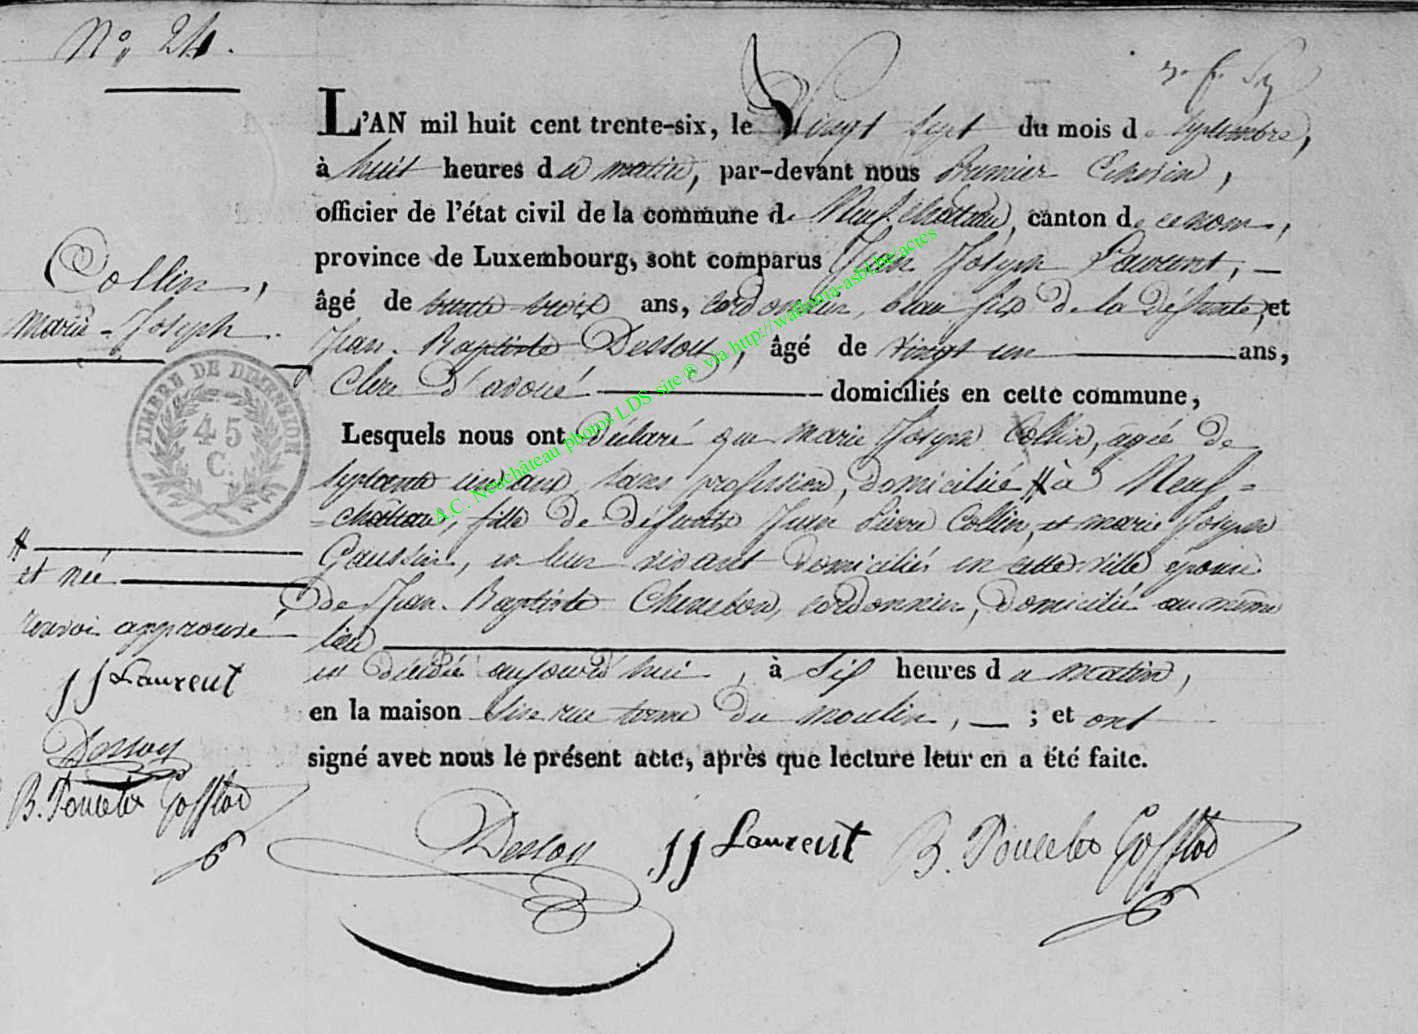 N.° 24.
L'AN mil huit cent trente-six, le Vingt sept du mois de Septembre,
à huit heures du matin, par-devant nous Premier Echevin,
officier de l'état civil de la commune de Neufchâteau, canton de ce nom,
province de Luxembourg, sont comparus Jean Joseph Laurent,
âgé de trente trois ans, cordonnier, beau fils de la défunte, et
Jean-Baptiste Dessoy, âgé de vingt un ans,
Clerc d'avoué domiciliés en cette commune,
Lesquels nous ont déclaré que marie Joseph Collin, agée de
septante un ans, sans profession, domiciliée # à Neuf=
=château, fille de défunts Jean Pierre Collin, et marie Joseph
Gaussin, en leur vivant domiciliés en cette ville épouse
de Jean-Baptiste cordonnier, domicilié au même
lieu
est décédée aujourd'hui, à Six heures du matin,
en la maison Sise rue du moulin, ; et ont
signé avec nous le présent acte, après que lecture leur en a été faite.
Dessoy JJ Laurent B. Poncelet Gofflot
Collin,
Marie-Joseph.
TIMBRE DE DIMENSION
45
C.
#
et née
renvoi approuvé
JJ Laurent
Dessoy
B. Poncelet Gofflot
A.C. Neuchâteau photos LDS site ® via http://wallonia-asbl.be/actes